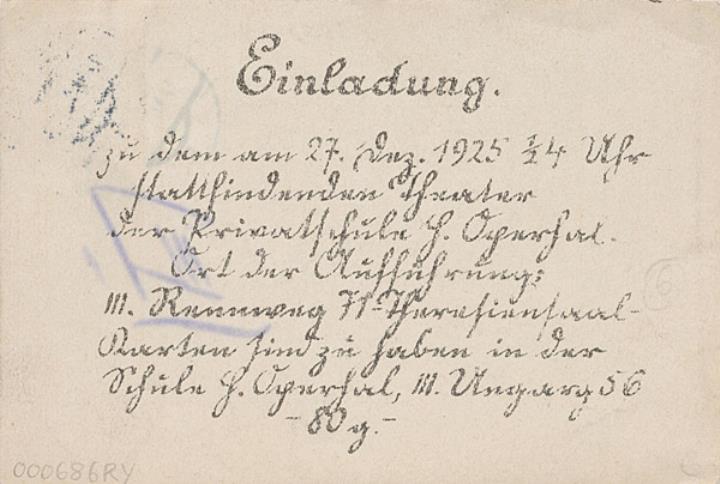 Einladung.
zu dem am 27. Dez. 1925 ½4 Uhr
stattfindenden Theater
der Privatschule H. Sperhal.
Ort der Aufführung:
III. Rennweg 71-Theresiensaal-
Karten sind zu haben in der
Schule H. Sperhal, III. Ungarg 56
- 80 g. -
000686RY